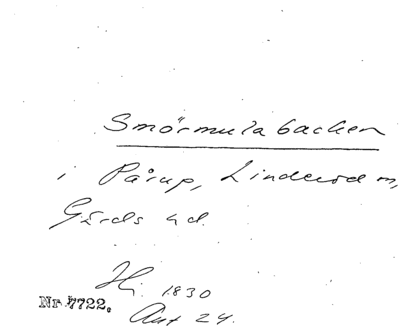 Smörmula backen
i Pårup, Linderöd sn,
Gärds hd.
Hj. 1830
Nr 7722.
Ant 24.